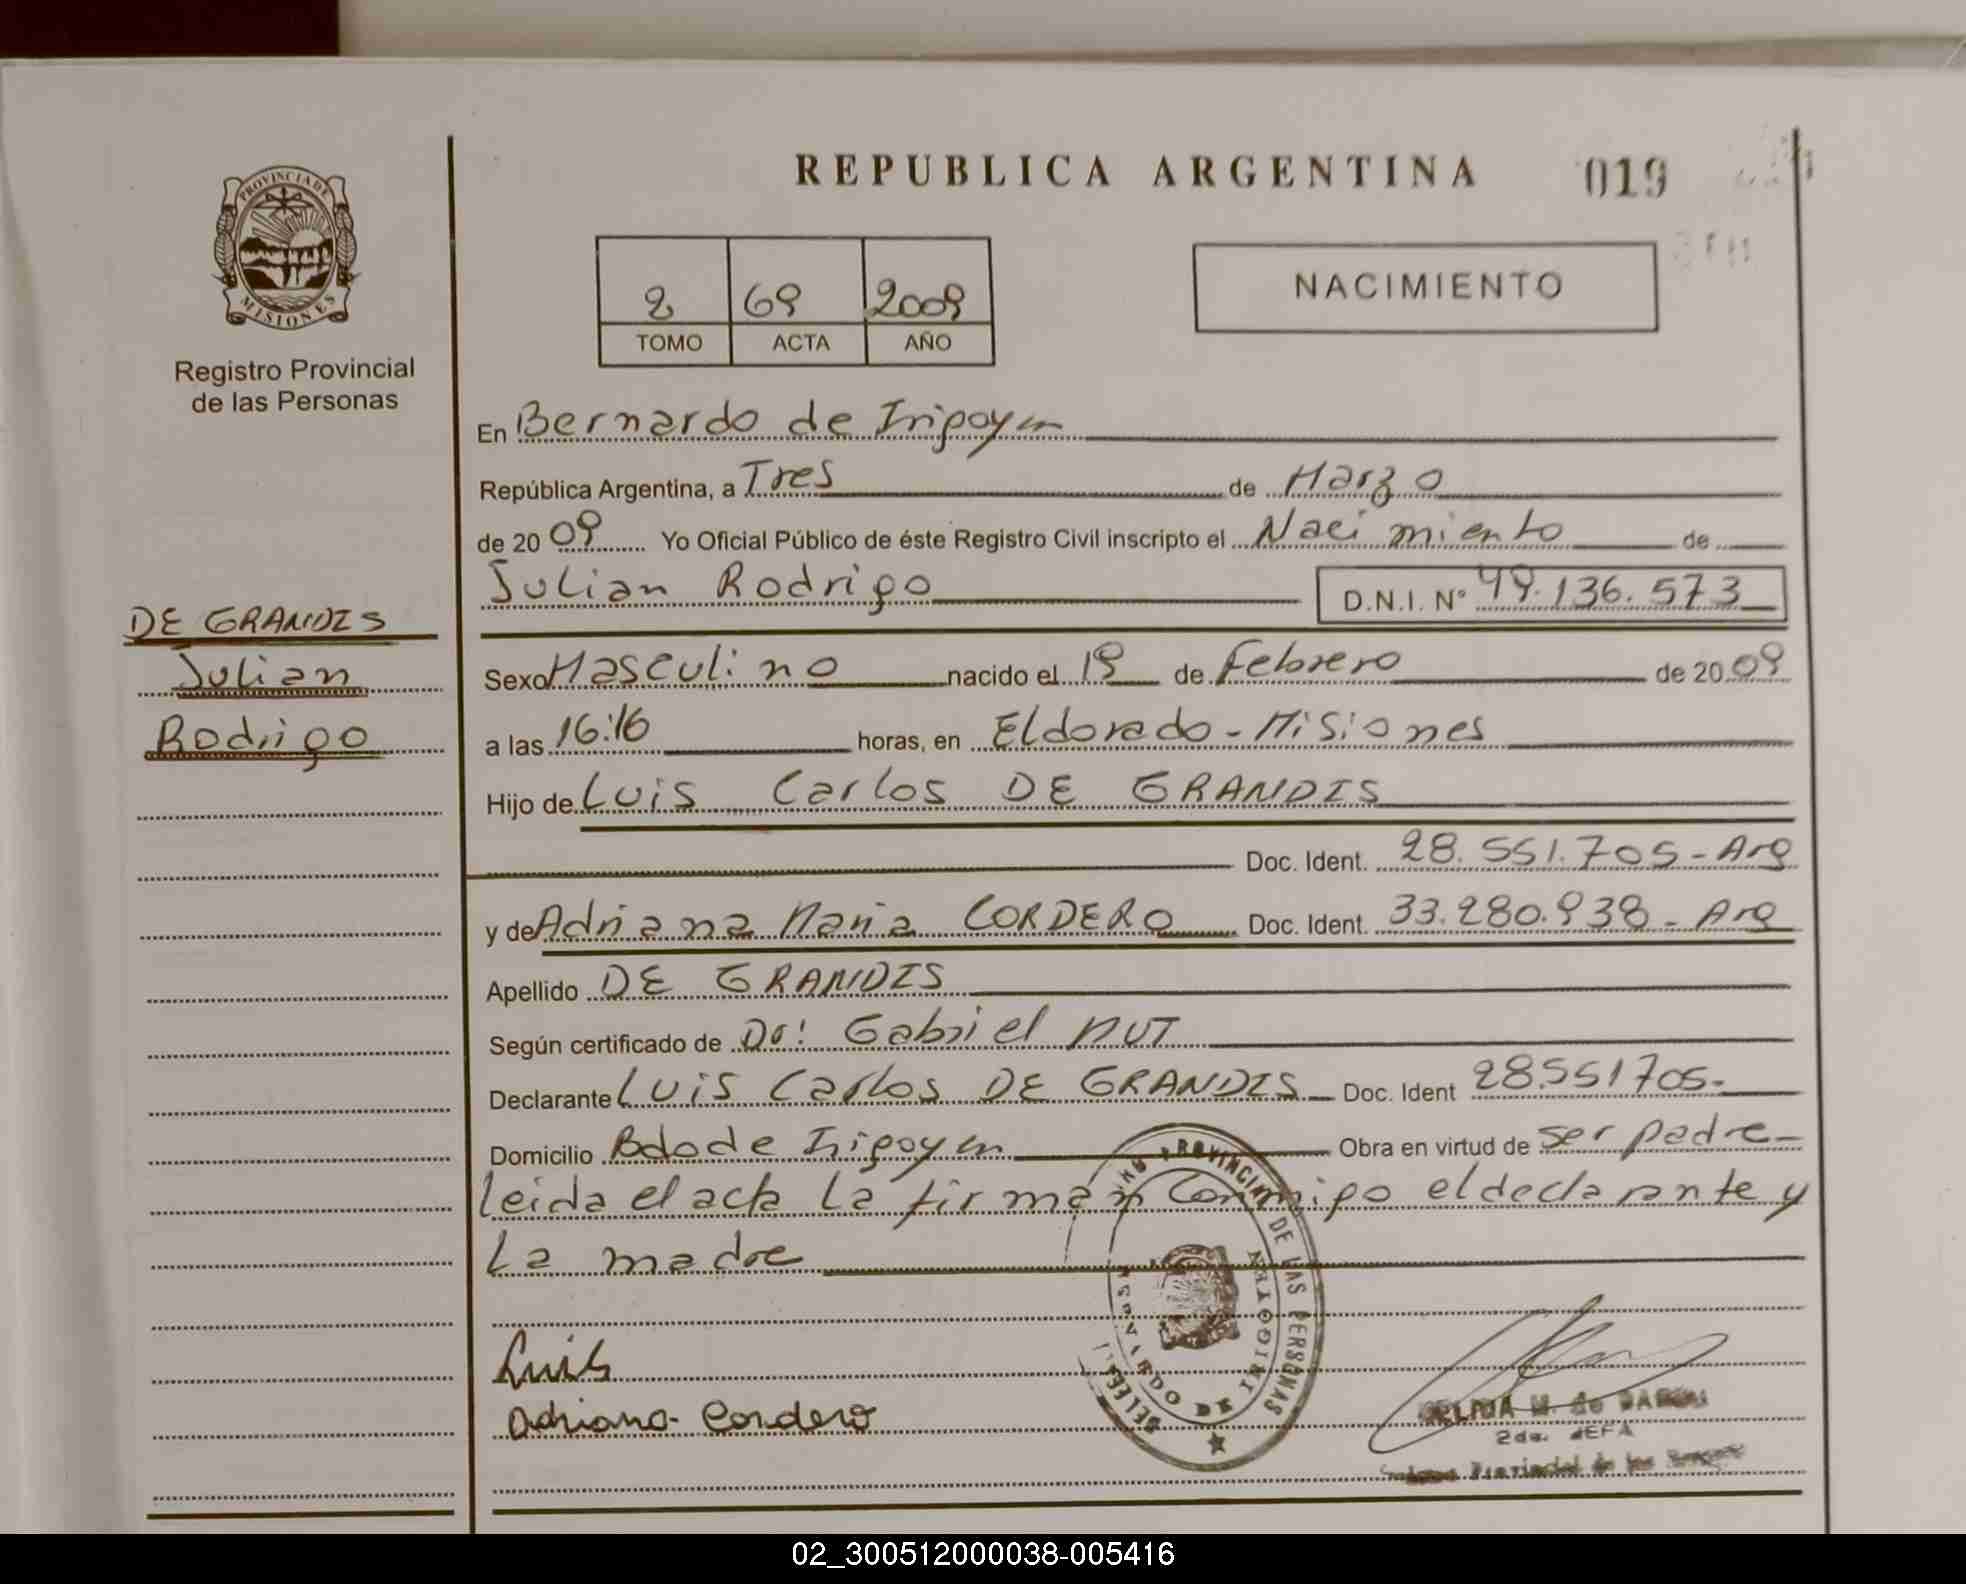 REPUBLICA ARGENTINA
019
PROVINCIA DE
MISIONES
Registro Provincial
de las Personas
2 69 2009
TOMO ACTA AÑO
NACIMIENTO
En Bernardo de Irigoyen
República Argentina, a Tres de Marzo
de 2009 Yo Oficial Público de éste Registro Civil inscripto el Nacimiento de
Julian Rodrigo D.N.I. Nº 49.136.573
DE GRANDIS
Julian
Rodrigo
Sexo Masculino nacido el 19 de Febrero de 2009
a las 16:16 horas, en Eldorado - Misiones
Hijo de Luis Carlos DE GRANDIS
Doc. Ident. 28.551.705 - Arg
y de Adriana Maria CORDERO Doc. Ident. 33.280.938 - Arg
Apellido DE GRANDIS
Según certificado de Dr: Gabriel NUT
Declarante Luis Carlos DE GRANDIS Doc. Ident 28.551705.
Domicilio Bdo de Irigoyen Obra en virtud de ser padre
leida el acta la firman conmigo el declarante y
la madre
Luis
Adriana Cordero
PROVINCIAL DE LAS PERSONAS
BERNARDO DE IRIGOYEN
2da. JEFA
Provincial de las
02_300512000038-005416